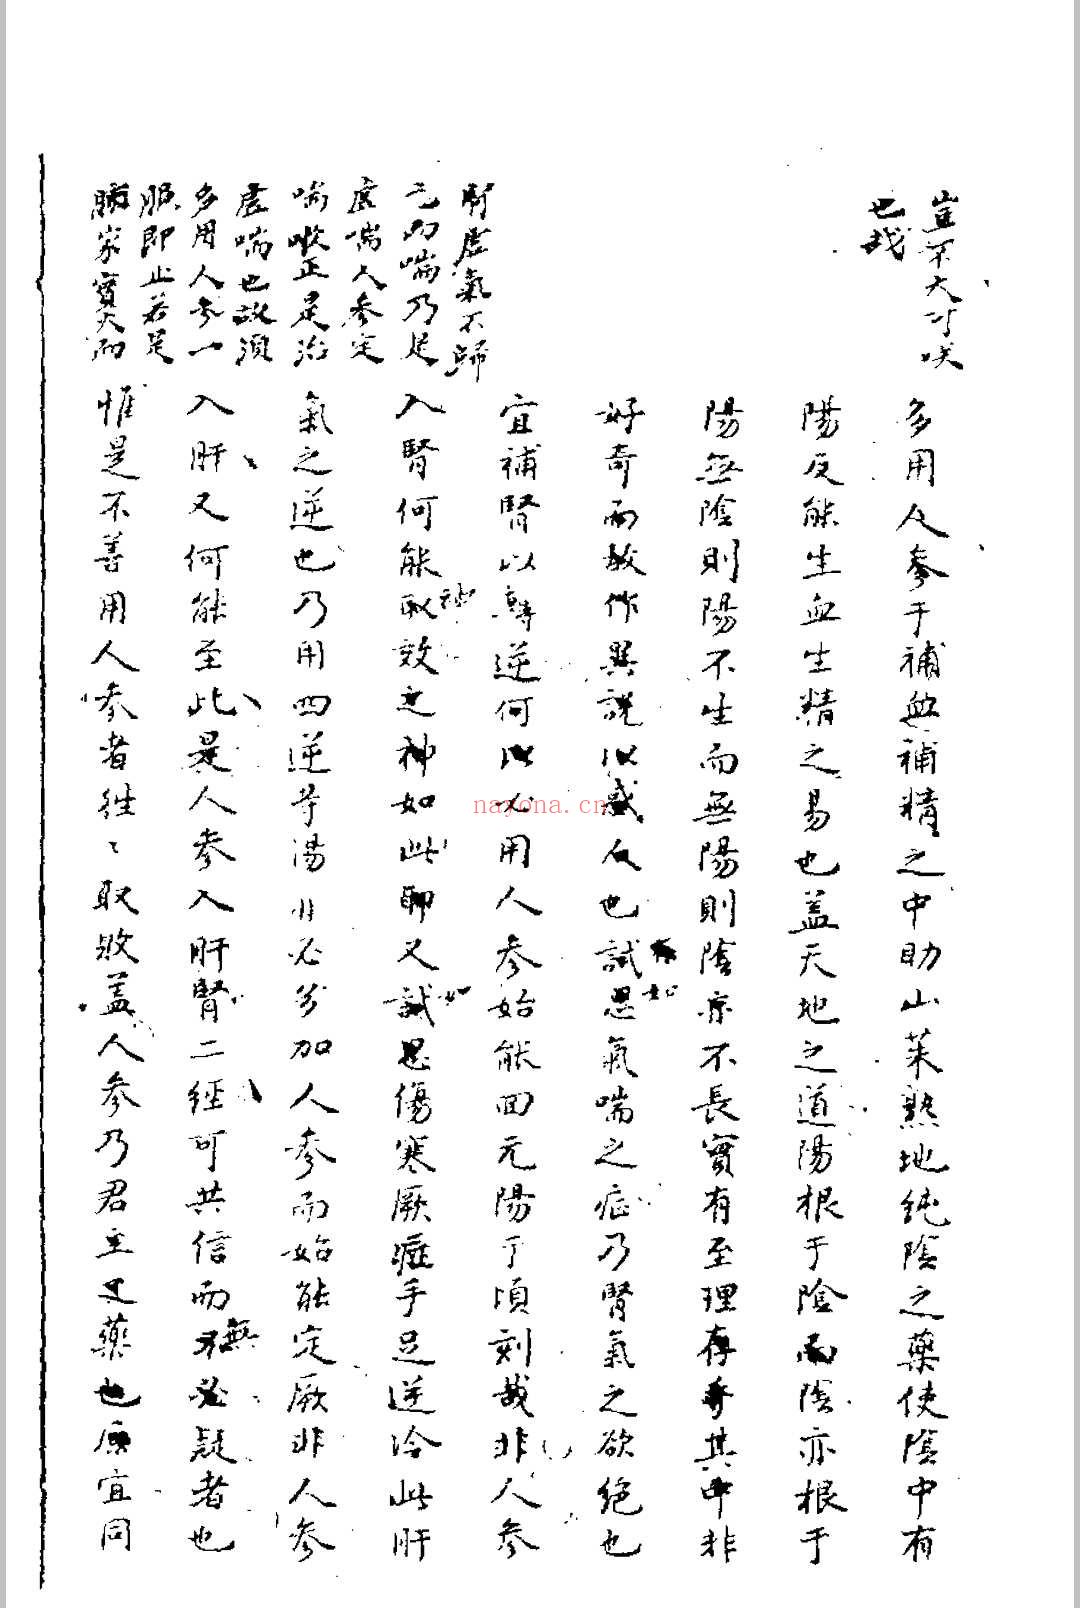 豈不大可咲
也哉
多用人參于補血補精之中助山茱熟地純陰之藥使陰中有
陽反能生血生精之易也蓋天地之道陽根于陰而陰亦根于
陽無陰則陽不生而無陽則陰亦不長實有至理存乎其中非
好奇而故作異說以惑人也試思氣喘之症乃腎氣之欲絕也
如
宜補腎以轉逆何以必用人參始能回元陽于頃刻哉非人參
腎虛氣不歸
元而喘乃是
虛喘人參定
喘嗽正是治
虛喘也故須
多用人參一
服即止若是
肺家實火而
入腎何能取效之神如此耶又試思傷寒厥症手足逆冷此肝
神
如
氣之逆也乃用四逆等湯非必分加人參而始能定厥非人參
入肝又何能至此是人參入肝腎二經可共信而不必疑者也
無
惟是不善用人參者往〻取敗蓋人參乃君主之藥也原宜同
nayona.cn